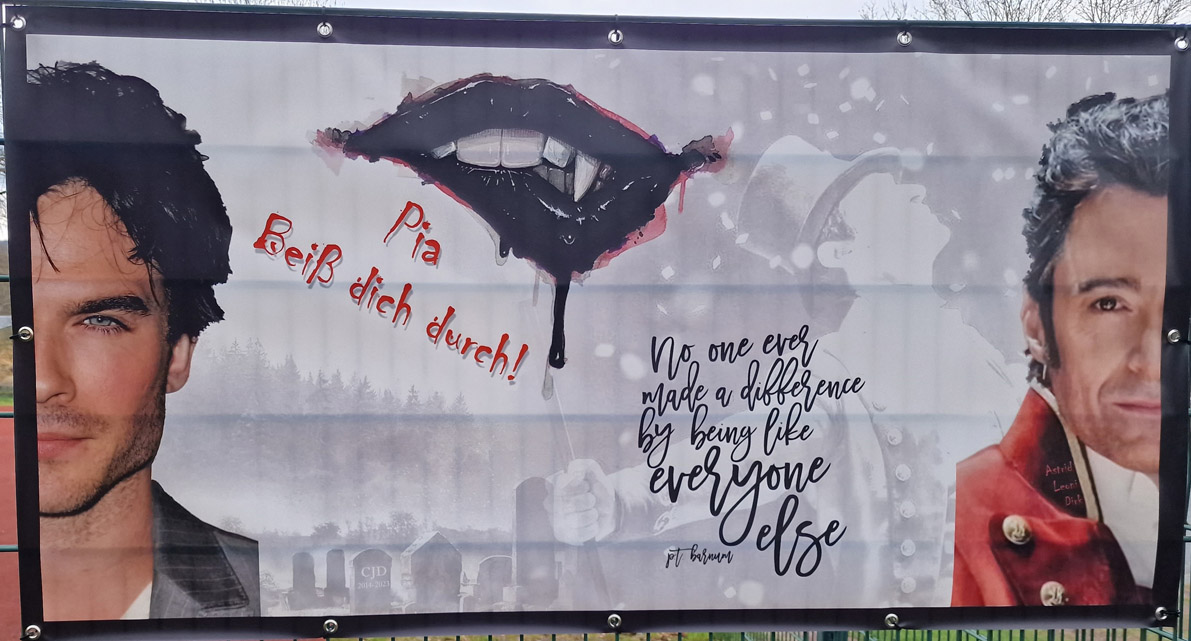 Pia
Beiß dich durch!
No one ever
made a difference
by being like
everyone
else
pt barnum
CJD
2014-2023
Astrid
Leoni
Dirk